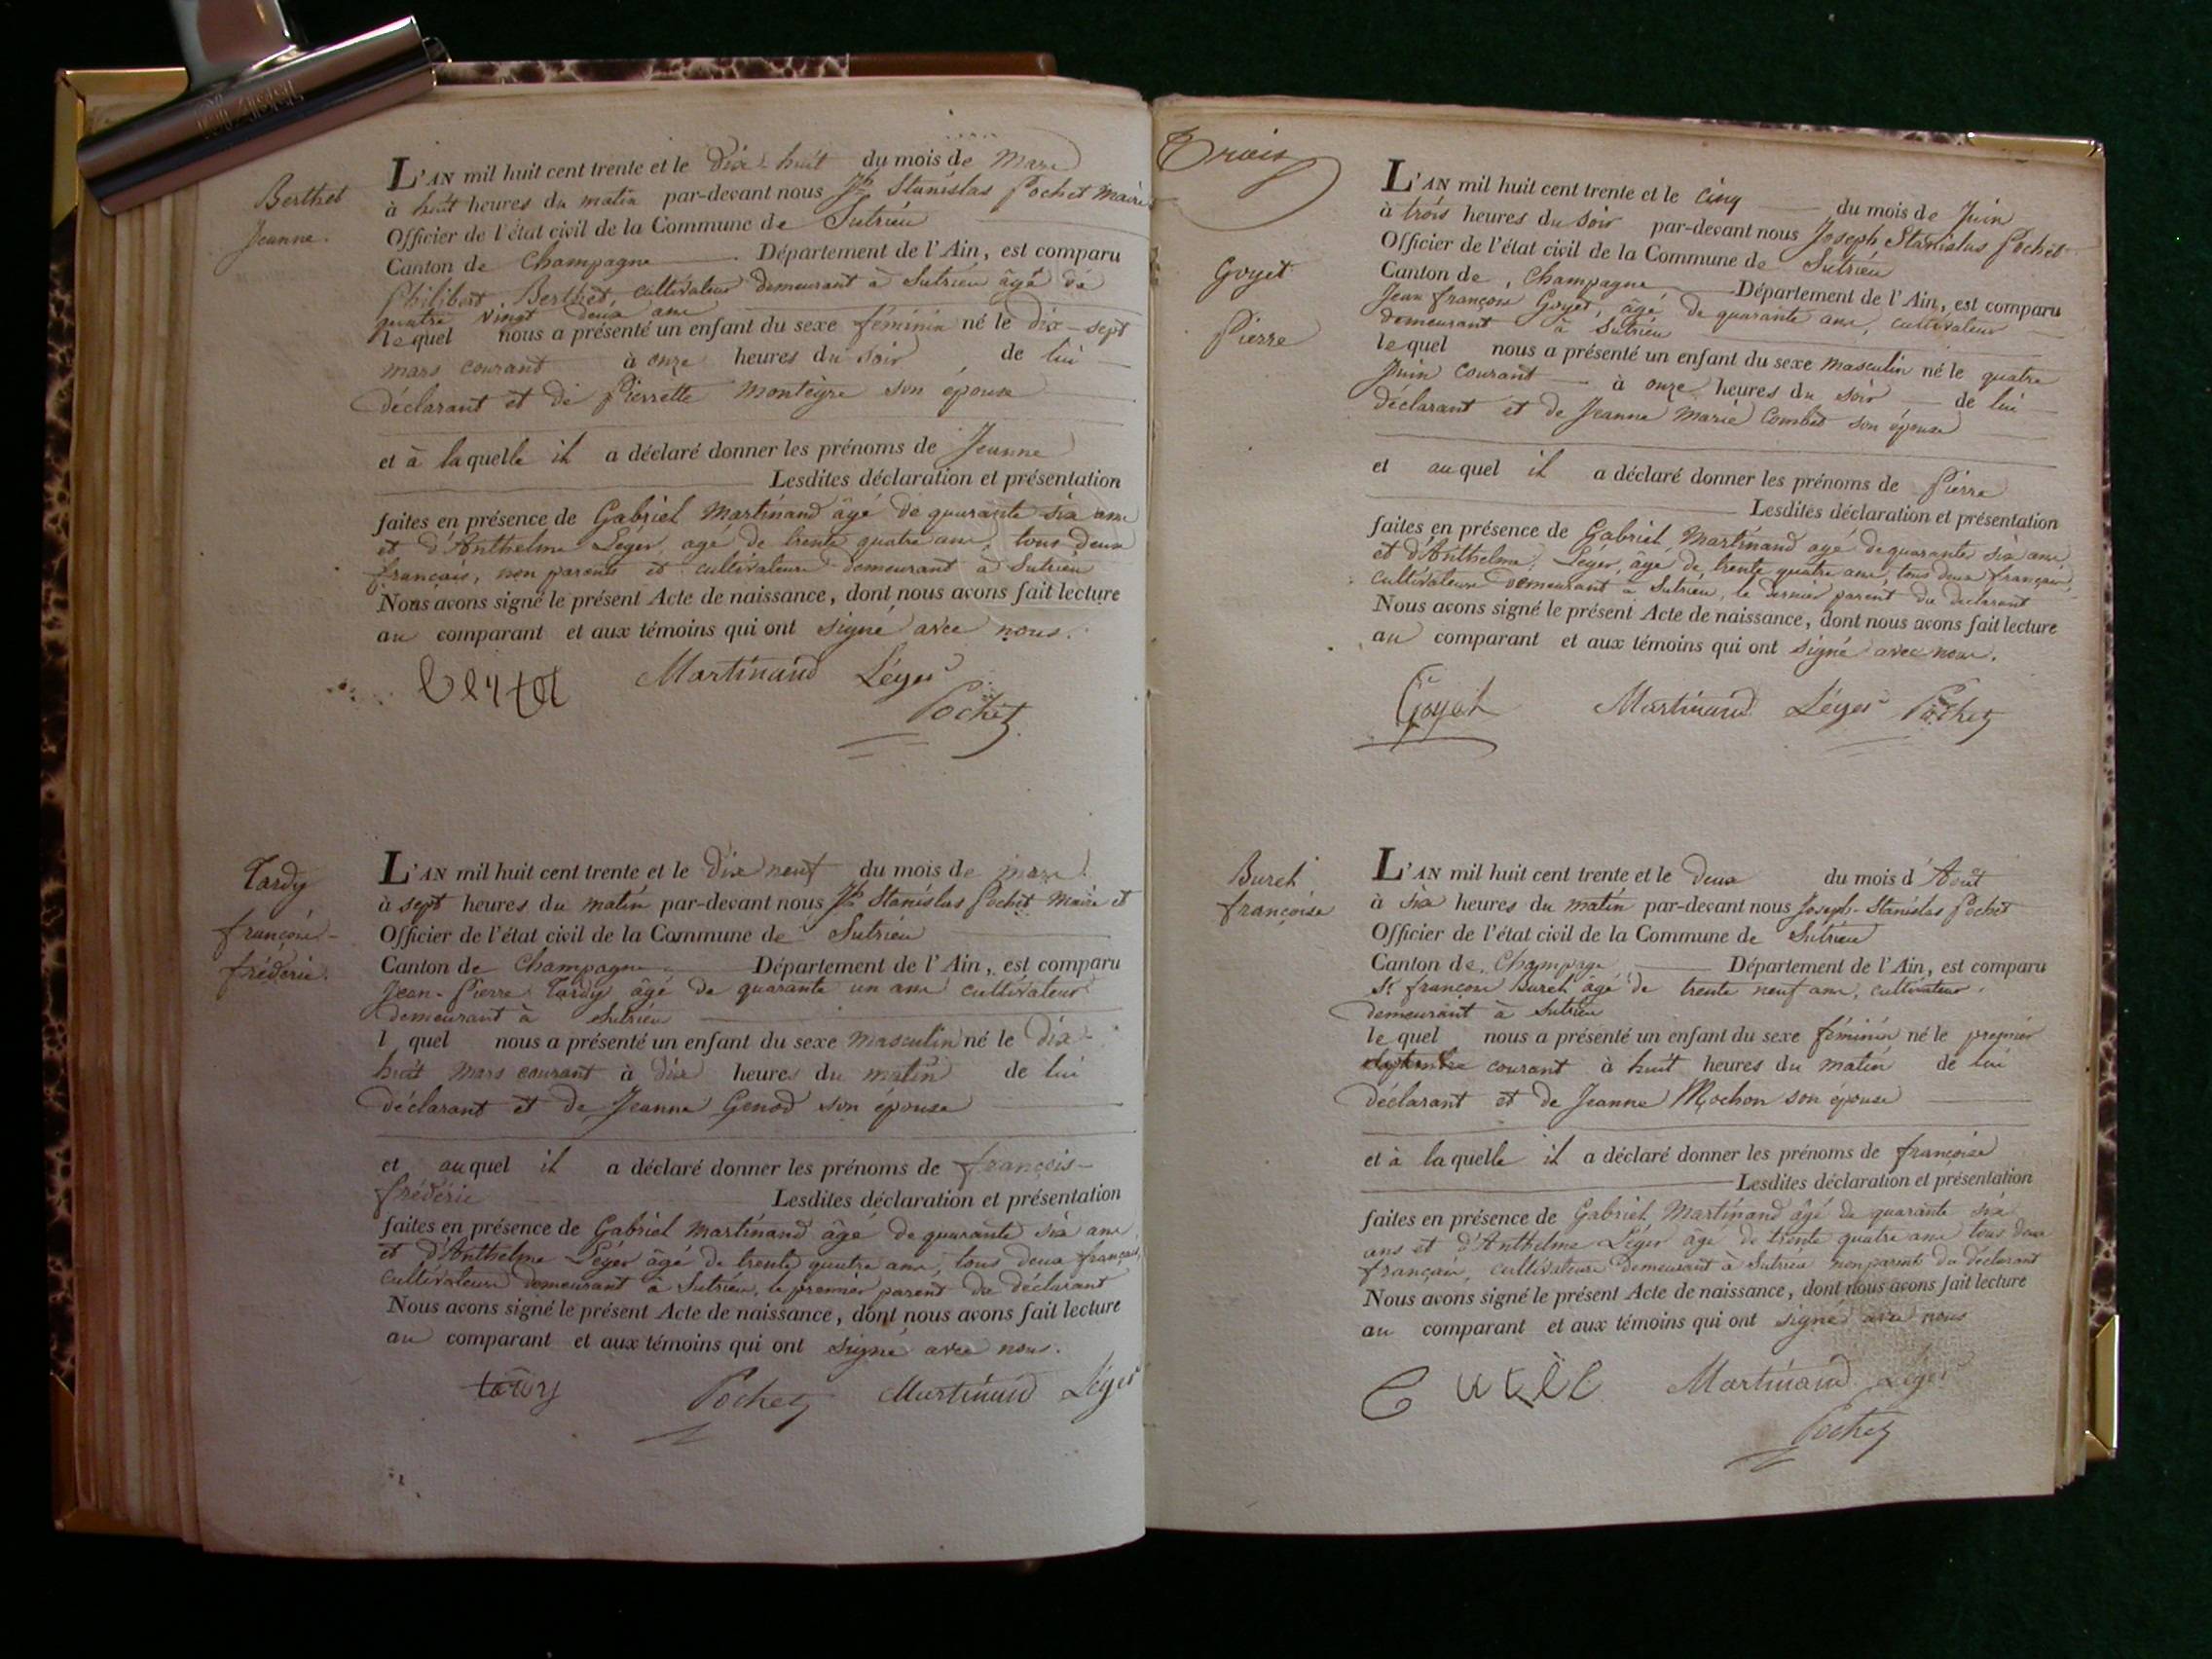 Berthet
Jeanne.
L'AN mil huit cent trente et le dix-huit du mois de Mars
à huit heures du matin par-devant nous Jh Stanislas Pochet Maire
Officier de l'état civil de la Commune de Sutrieu
Canton de Champagne Département de l'Ain, est comparu
Philibert Berthet, cultivateur demeurant à Sutrieu âgé de
quatre vingt deux ans
lequel nous a présenté un enfant du sexe féminin né le dix-sept
mars courant à onze heures du soir de lui
déclarant et de Pierrette Montegre son épouse
et à laquelle il a déclaré donner les prénoms de Jeanne
Lesdites déclaration et présentation
faites en présence de Gabriel Martinand âgé de quarante six ans
et d'Anthelme Léger, age de trente quatre ans, tous deux
français, non parents et cultivateurs demeurant à Sutrieu
Nous avons signé le présent Acte de naissance, dont nous avons fait lecture
au comparant et aux témoins qui ont signé avec nous.
Martinand Léger
Pochet
Tardy
françois-
fréderic.
L'AN mil huit cent trente et le dix neuf du mois de mars
à sept heures du matin par-devant nous Jh Stanislas Pochet Maire et
Officier de l'état civil de la Commune de Sutrieu
Canton de Champagne Département de l'Ain, est comparu
Jean-Pierre Tardy âgé de quarante un ans cultivateur
demeurant à Sutrieu
l quel nous a présenté un enfant du sexe masculin né le dix-
huit mars courant à dix heures du matin de lui
déclarant et de Jeanne Genod son épouse
et auquel il a déclaré donner les prénoms de françois-
fréderic Lesdites déclaration et présentation
faites en présence de Gabriel Martinand âgé de quarante six ans
et d'Anthelme Léger âgé de trente quatre ans, tous deux français,
cultivateurs demeurant à Sutrieu, le premier parent du déclarant
Nous avons signé le présent Acte de naissance, dont nous avons fait lecture
au comparant et aux témoins qui ont signé avec nous.
tardy Pochet Martinand Léger
Trois
Goyet
Pierre
L'AN mil huit cent trente et le cinq du mois de Juin
à trois heures du soir par-devant nous Joseph Stanislas Pochet
Officier de l'état civil de la Commune de Sutrieu
Canton de Champagne Département de l'Ain, est comparu
Jean françois Goyet, âgé de quarante ans, cultivateur
demeurant à Sutrieu
lequel nous a présenté un enfant du sexe masculin né le quatre
Juin courant à onze heures du soir de lui
déclarant et de Jeanne Marie Combet son épouse
et auquel il a déclaré donner les prénoms de Pierre
Lesdites déclaration et présentation
faites en présence de Gabriel Martinand agé de quarante six ans
et d'Anthelme Léger, âgé de trente quatre ans, tous deux français,
cultivateurs demeurant à Sutrieu, le dernier parent du déclarant
Nous avons signé le présent Acte de naissance, dont nous avons fait lecture
au comparant et aux témoins qui ont signé avec nous.
Goyet Martinand Léger Pochet
Buret
françoise
L'AN mil huit cent trente et le deux du mois d'Août
à six heures du matin par-devant nous Joseph-Stanislas Pochet
Officier de l'état civil de la Commune de Sutrieu
Canton de Champage Département de l'Ain, est comparu
Sr françois Buret âgé de trente neuf ans, cultivateur,
demeurant à Sutrieu
lequel nous a présenté un enfant du sexe féminin né le premier
courant à huit heures du matin de lui
déclarant et de Jeanne Mochon son épouse
et à laquelle il a déclaré donner les prénoms de françoise
Lesdites déclaration et présentation
faites en présence de Gabriel Martinand âgé de quarante six
ans et d'Anthelme Léger âgé de trente quatre ans tous deux
français, cultivateurs demeurant à Sutrieu non parents du déclarant
Nous avons signé le présent Acte de naissance, dont nous avons fait lecture
au comparant et aux témoins qui ont signé avec nous
Martinand Léger
Pochet